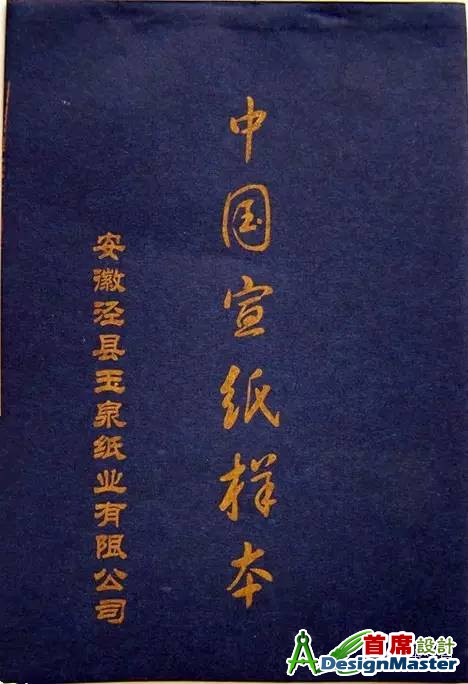 中国宣纸样本
安徽泾县玉泉纸业有限公司
首席設計
DesignMaster